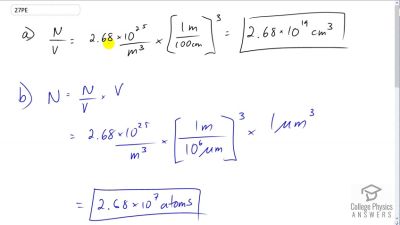 27PE
a) N/V = 2.68 × 10^25 / m^3 × [1 m / 100 cm]^3 = 2.68 × 10^19 cm^3
b) N = N/V × V
= 2.68 × 10^25 / m^3 × [1 m / 10^6 μm]^3 × 1 μm^3
= 2.68 × 10^7 atoms
College Physics
ANSWERS